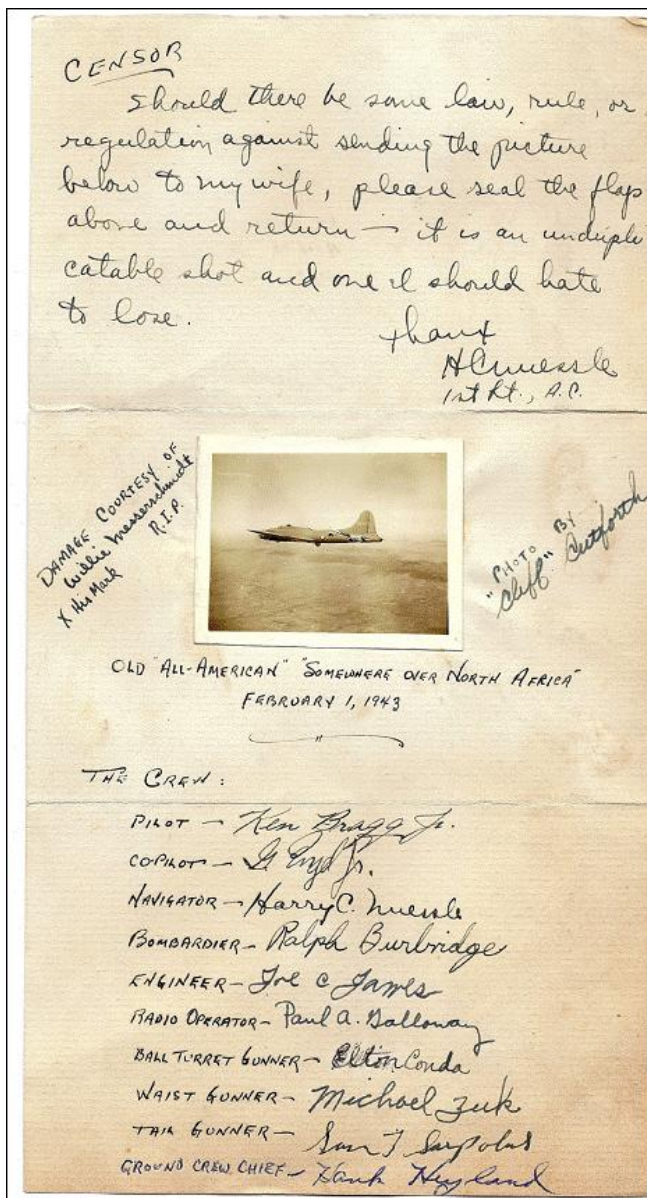 CENSOR
Should there be some law, rule, or
regulation against sending the picture
below to my wife, please seal the flap
above and return — it is an undupli
catable shot and one I should hate
to lose.
thanx
HCNuessle
1st Lt., A.C.
DAMAGE COURTESY OF
Willie Messerschmidt
R.I.P.
X His Mark
"PHOTO BY
"Cliff" Cutforth
OLD "ALL-AMERICAN" "SOMEWHERE OVER NORTH AFRICA"
FEBRUARY 1, 1943
THE CREW:
PILOT — Ken Bragg Jr.
COPILOT — G Boyd Jr.
NAVIGATOR — Harry C. Nuessle
BOMBARDIER — Ralph Burbridge
ENGINEER — Joe C James
RADIO OPERATOR — Paul A. Galloway
BALL TURRET GUNNER — Elton Conda
WAIST GUNNER — Michael Zuk
TAIL GUNNER — Sam T Sarpolus
GROUND CREW CHIEF — Hank Hyland